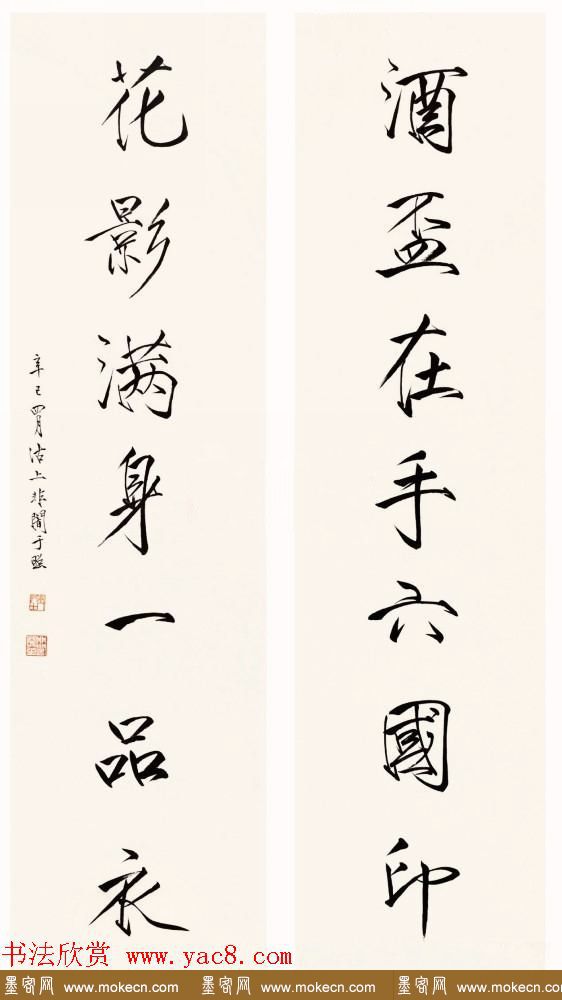 酒盃在手六國印
花影满身一品衣
辛巳四月沽上非闇于照
书法欣赏 www.yac8.com
墨客网 www.mokecn.com 墨客网 www.mokecn.com 墨客网 www.mokecn.com